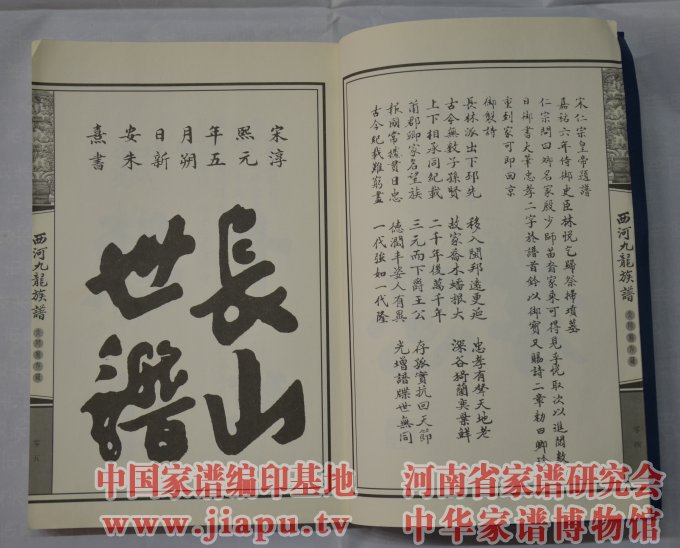 宋仁宗皇帝題譜
嘉祐六年侍御史臣林悦乞歸祭掃墳墓
仁宗問四鄉名家殷少師苗裔家乘可得見乎悦取次以進閱數
日御書大筆忠孝二字於譜首鈐以御寶又賜詩二章勅曰卿
重到家可即回京
御製詩
長林派出下邳先 移入閩邦遠更延 忠孝有聲天地老
古今無數子孫賢 故家喬木蟠根大 深谷猗蘭奕葉鮮
上下相承同紀載 二千年後萬千年
莆郡卿家名望族 三元而下爵王公 存孤實抗回天節
報國常摸貫日忠 德潤丰姿人有異 光增譜牒世無同
古今紀載難窮盡 一代強如一代隆
西河九龍族譜
零四
宋淳
熙元
年五
月朔
日新
安朱
熹書
長山
世譜
西河九龍族譜
零五
中国家谱编印基地
www.jiapu.tv
河南省家谱研究会
中华家谱博物馆